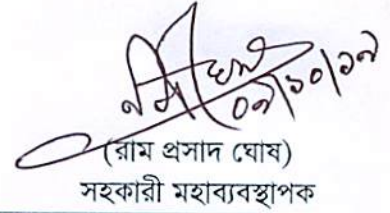 ০৯/১০/১৭
(রাম প্রসাদ ঘোষ)
সহকারী মহাব্যবস্থাপক